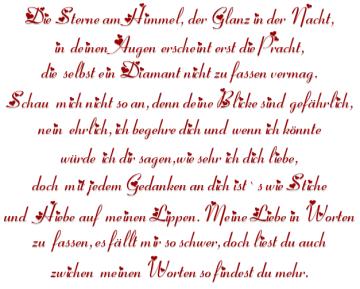 Die Sterne am Himmel, der Glanz in der Nacht,
in deinen Augen erscheint erst die Pracht,
die selbst ein Diamant nicht zu fassen vermag.
Schau mich nicht so an, denn deine Blicke sind gefährlich,
nein ehrlich, ich begehre dich und wenn ich könnte
würde ich dir sagen, wie sehr ich dich liebe,
doch mit jedem Gedanken an dich ist`s wie Stiche
und Hiebe auf meinen Lippen. Meine Liebe in Worten
zu fassen, es fällt mir so schwer, doch liest du auch
zwichen meinen Worten so findest du mehr.